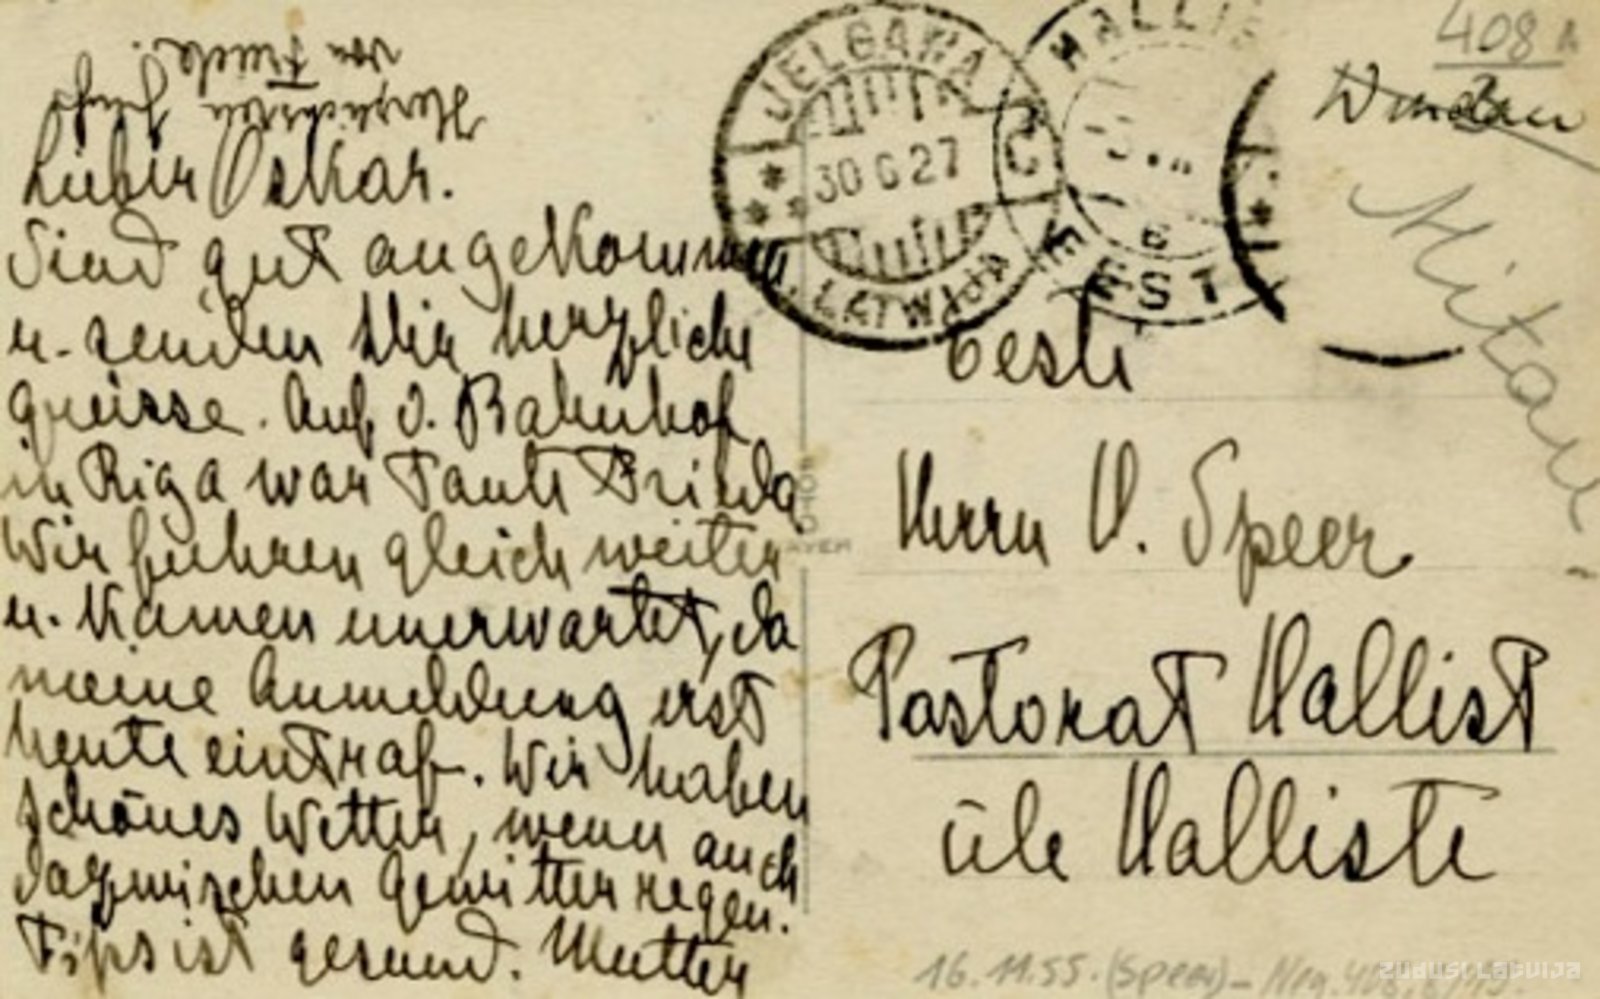 Herzlichsten Gruß
von Trude.
Lieber Oskar.
Sind gut angekommen
u. senden Dir herzliche
Grüsse. Auf d. Bahnhof
in Riga war Tante Frieda
Wir fuhren gleich weiter
u. kamen unerwartet, da
meine Anmeldung erst
heute eintraf. Wir haben
schönes Wetter, wenn auch
dazwischen Gewitterregen.
Fips ist gesund. Mutter
JELGAWA
30 6 27
C
LATWIJA
HALLIS
B
EESTI
408
Windau
Mitau
Eesti
Herrn O. Speer
Pastorat Hallist
üle Halliste
16.11.55. (Speer) – Neg.
ZUDUSI LATVIJA